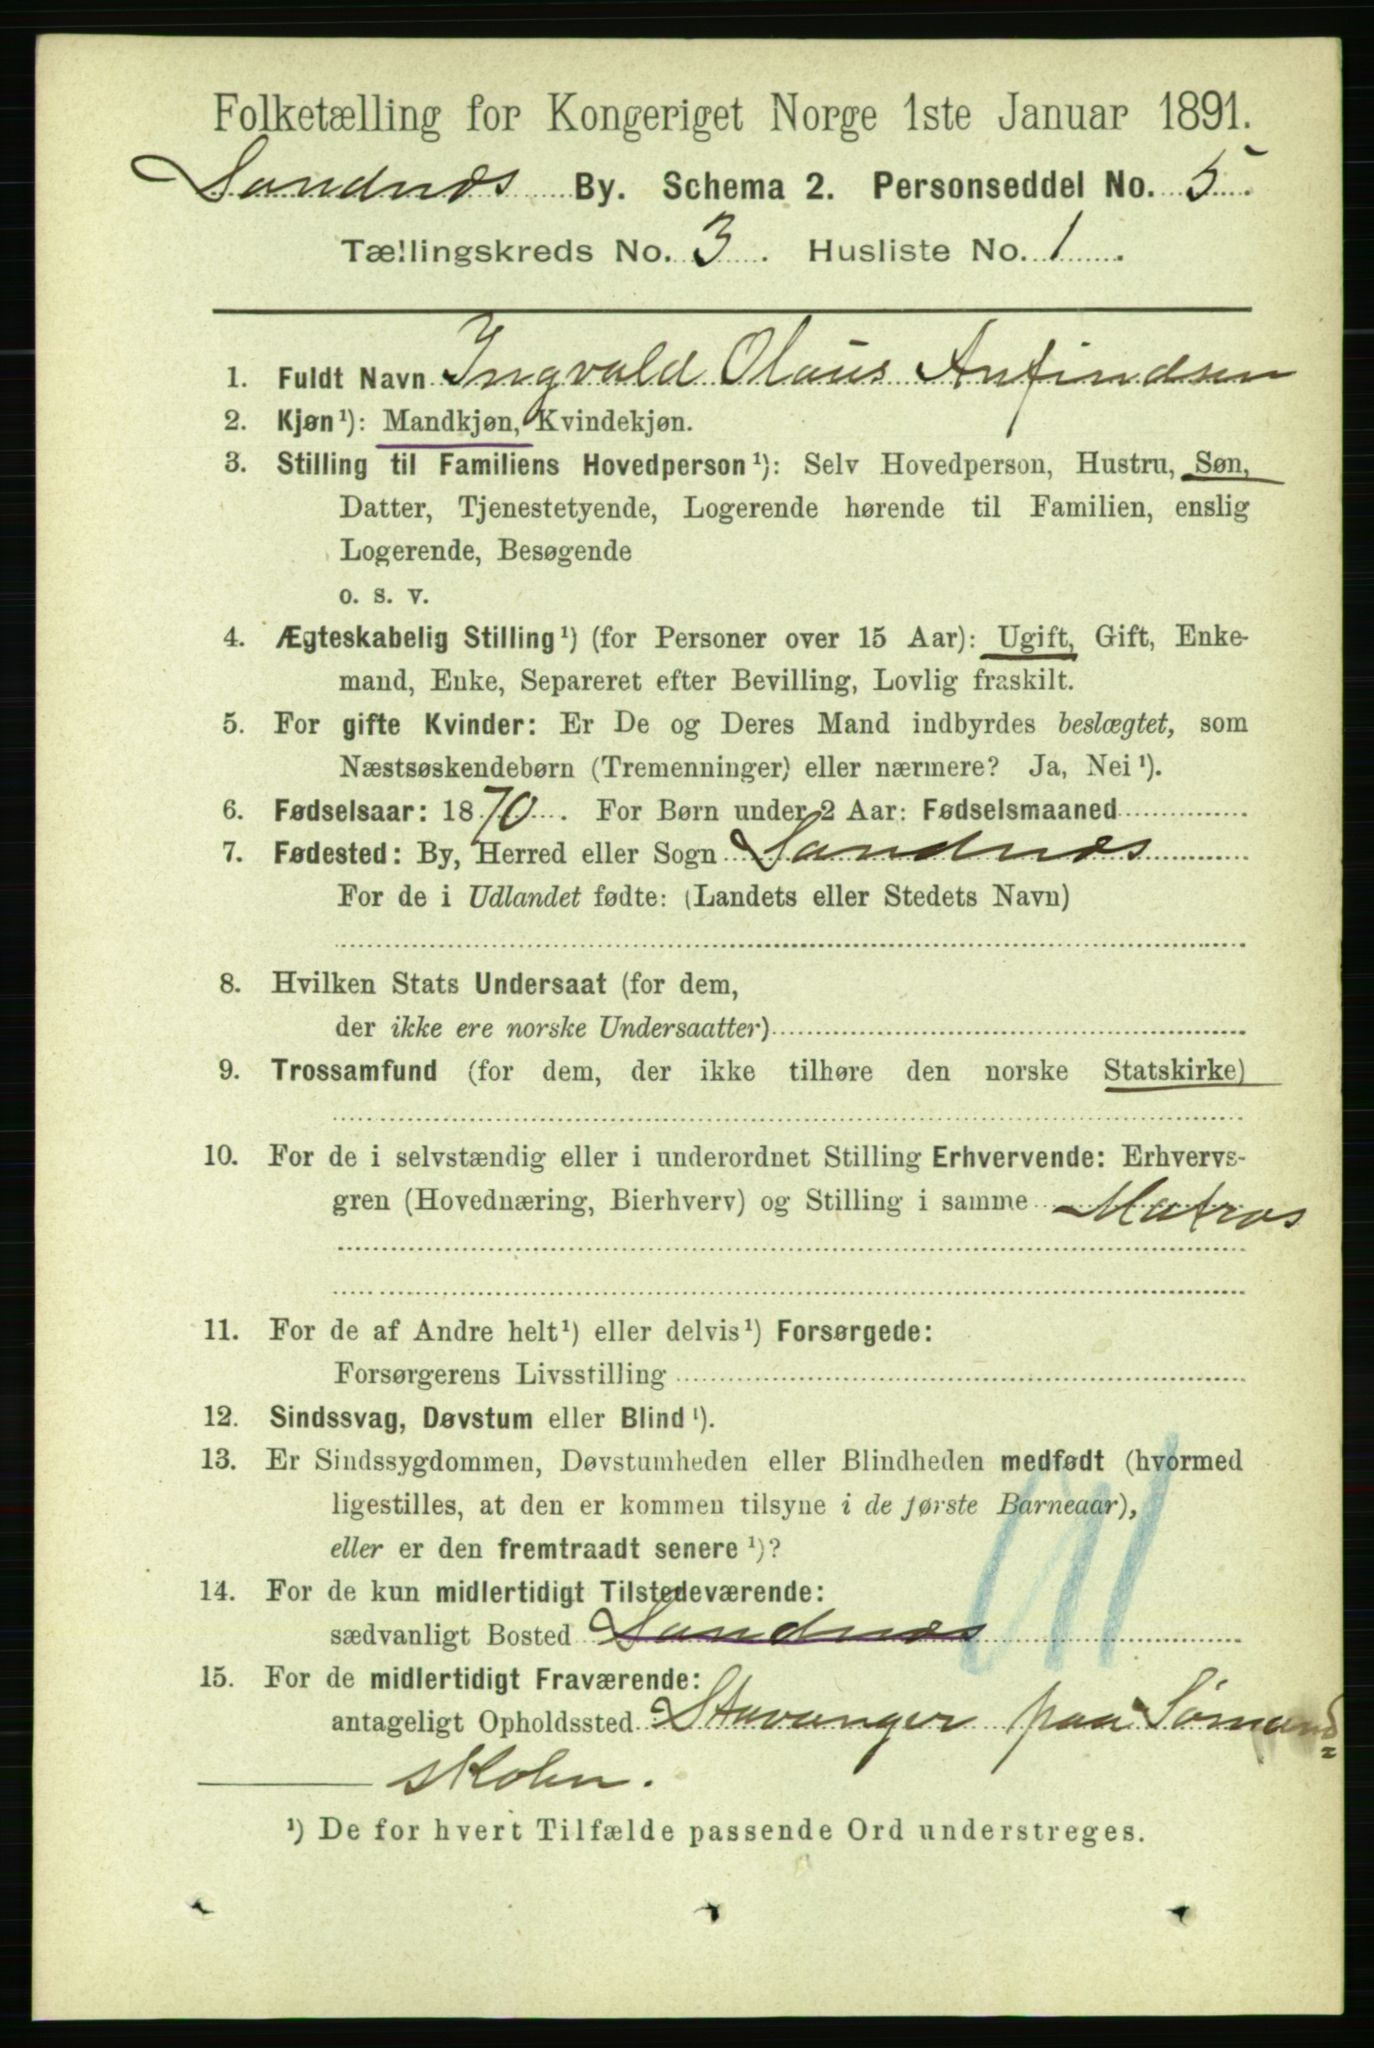 Folketælling for Kongeriget Norge 1ste Januar 1891.
Sandnæs By. Schema 2. Personseddel No. 5.
Tællingskreds No. 3. Husliste No. 1.
1. Fuldt Navn Ingvald Olaus Anfindsen
2. Kjøn¹): Mandkjøn, Kvindekjøn.
3. Stilling til Familiens Hovedperson¹): Selv Hovedperson, Hustru, Søn,
Datter, Tjenestetyende, Logerende hørende til Familien, enslig
Logerende, Besøgende
o. s. v.
4. Ægteskabelig Stilling¹) (for Personer over 15 Aar): Ugift, Gift, Enke-
mand, Enke, Separeret efter Bevilling, Lovlig fraskilt.
5. For gifte Kvinder: Er De og Deres Mand indbyrdes beslægtet, som
Næstsøskendebørn (Tremenninger) eller nærmere? Ja, Nei¹).
6. Fødselsaar: 1870. For Børn under 2 Aar: Fødselsmaaned
7. Fødested: By, Herred eller Sogn Sandnæs
For de i Udlandet fødte: (Landets eller Stedets Navn)
8. Hvilken Stats Undersaat (for dem,
der ikke ere norske Undersaatter)
9. Trossamfund (for dem, der ikke tilhøre den norske Statskirke)
10. For de i selvstændig eller i underordnet Stilling Erhvervende: Erhvervs-
gren (Hovednæring, Bierhverv) og Stilling i samme Matros
11. For de af Andre helt¹) eller delvis¹) Forsørgede:
Forsørgerens Livsstilling
12. Sindssvag, Døvstum eller Blind¹).
13. Er Sindssygdommen, Døvstumheden eller Blindheden medfødt (hvormed
ligestilles, at den er kommen tilsyne i de første Barneaar),
eller er den fremtraadt senere¹)?
14. For de kun midlertidigt Tilstedeværende:
sædvanligt Bosted Sandnæs
15. For de midlertidigt Fraværende:
antageligt Opholdssted Stavanger paa Sømand=
skolen.
¹) De for hvert Tilfælde passende Ord understreges.